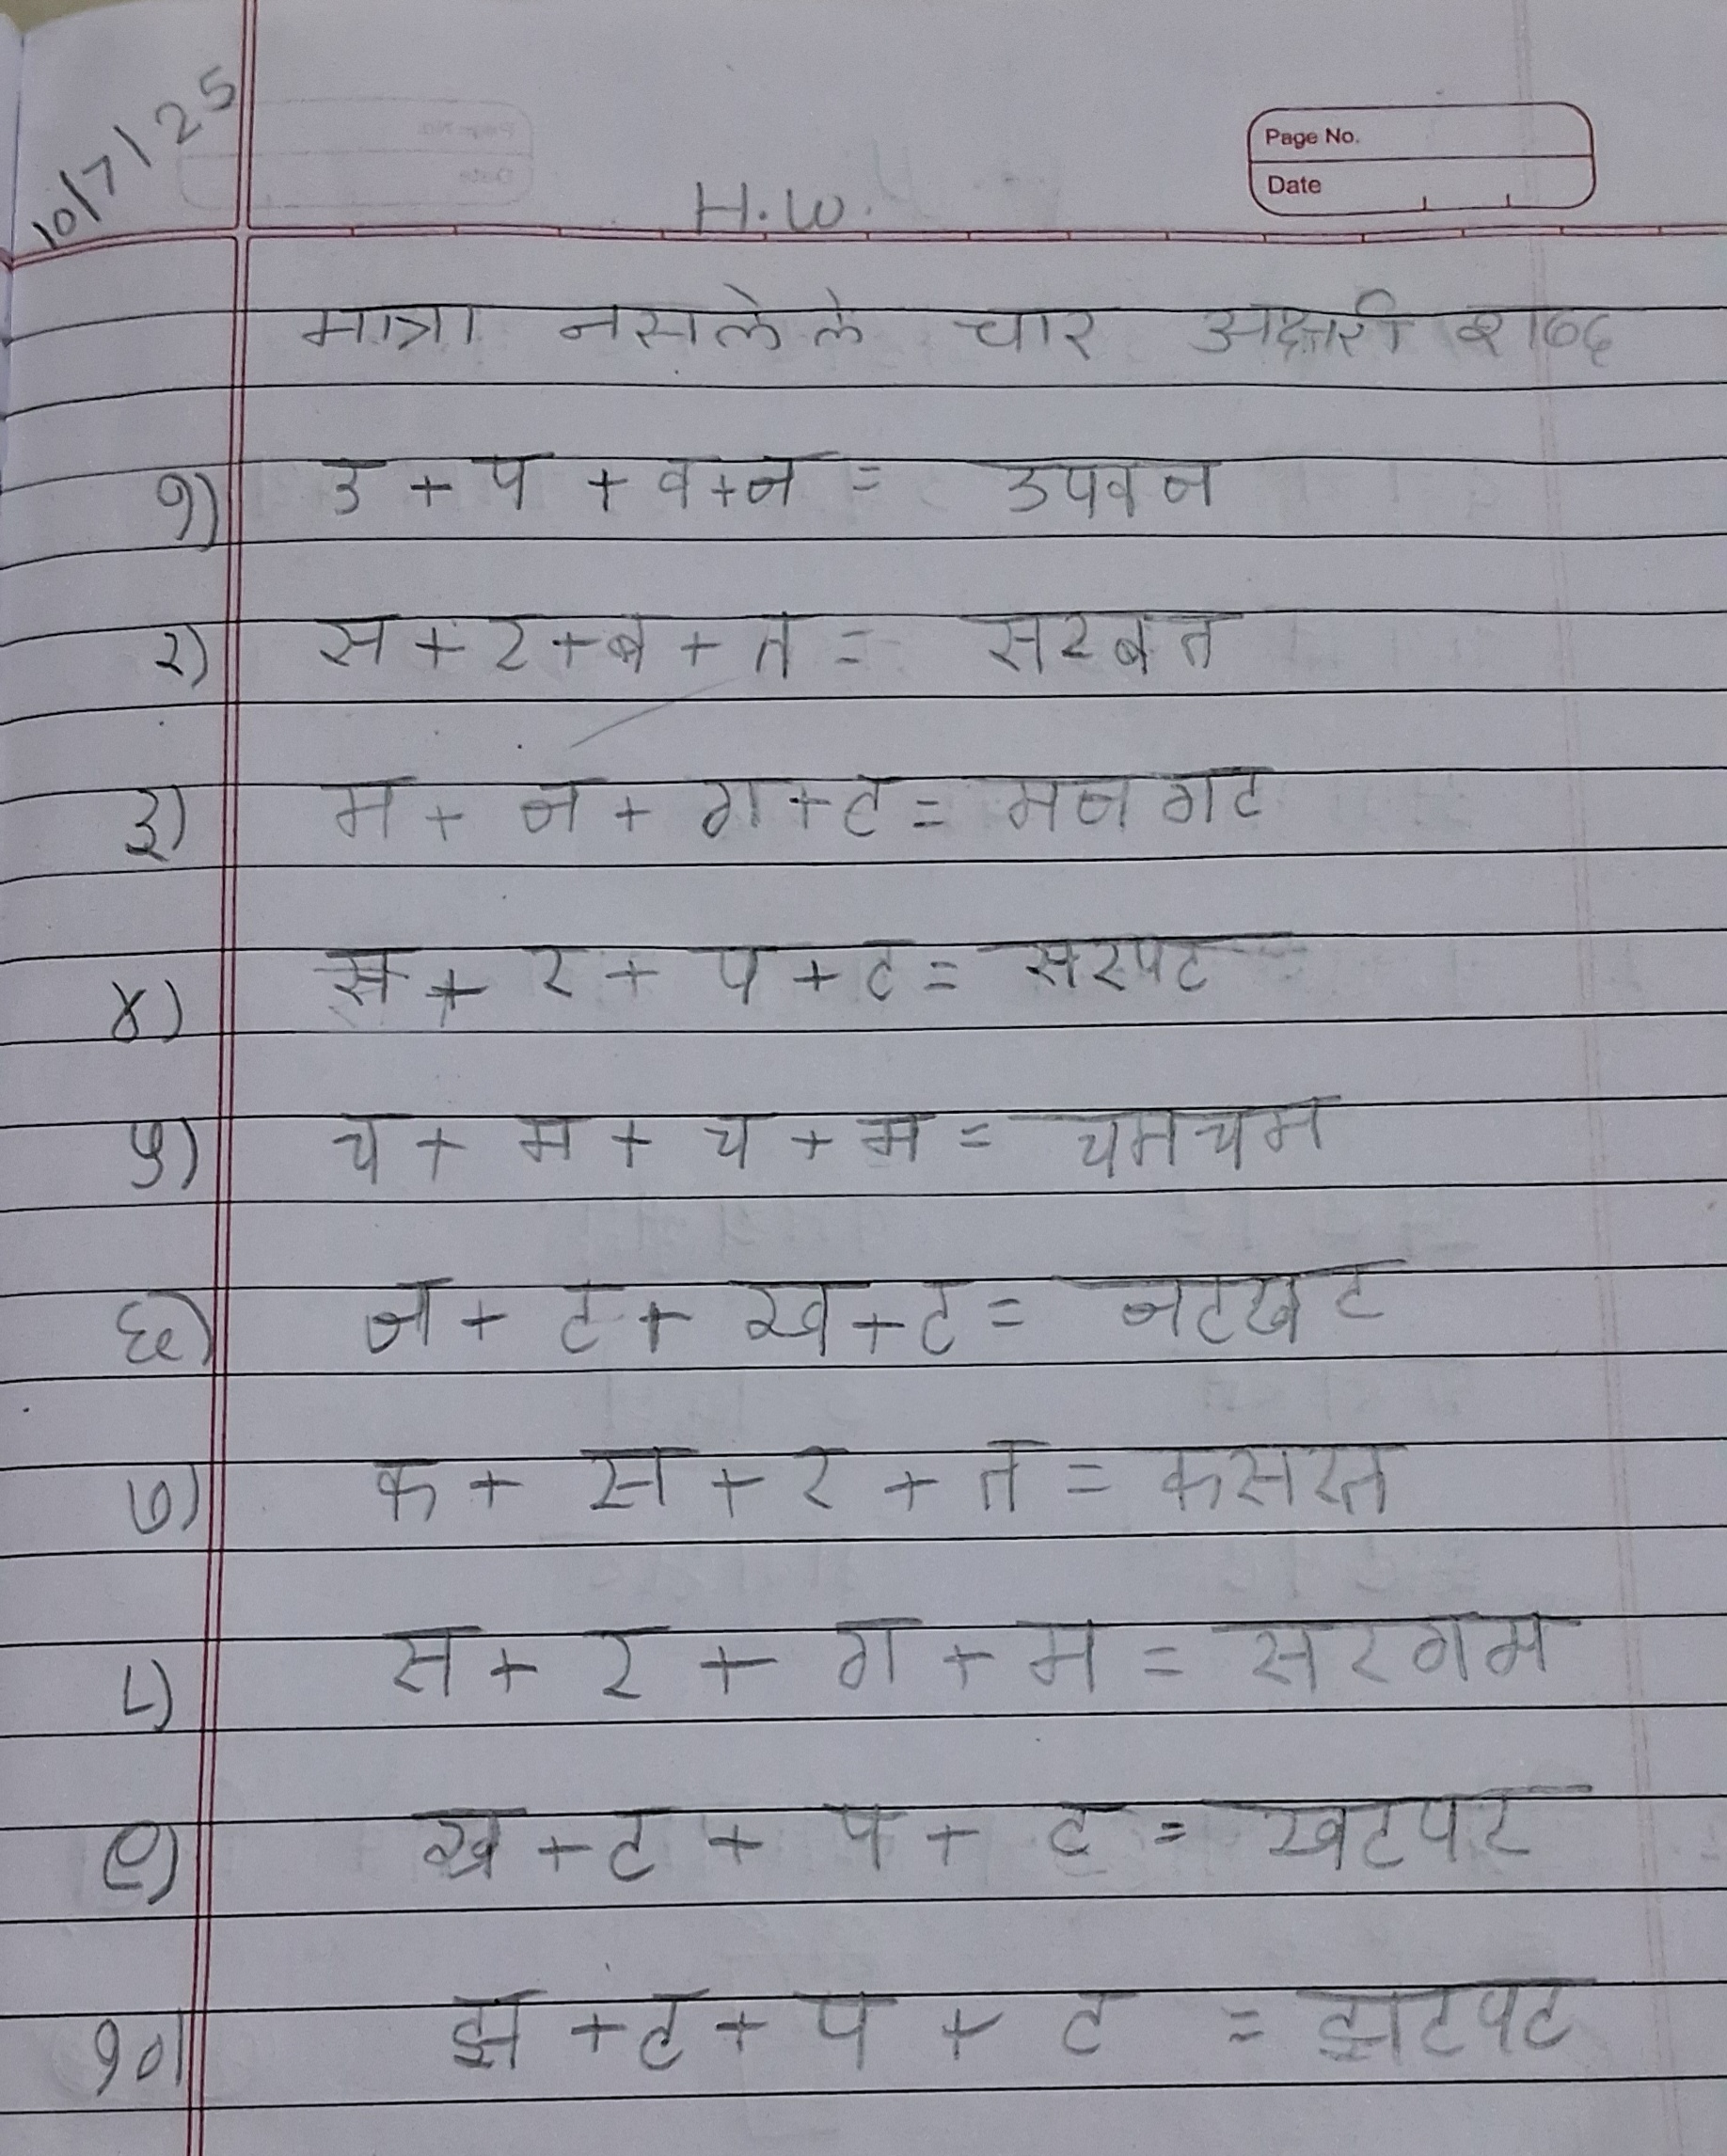 10/7/25
Page No.
Date
H.W.
मात्रा नसलेले चार अक्षरी शब्द
१) उ + प + व + न = उपवन
२) स + र + ब + त = सरबत
३) म + न + ग + ट = मनगट
४) स + र + प + ट = सरपट
५) च + म + च + म = चमचम
६) न + ट + ख + ट = नटखट
७) क + स + र + त = कसरत
८) स + र + ग + म = सरगम
९) ख + ट + प + ट = खटपट
१०) झ + ट + प + ट = झटपट